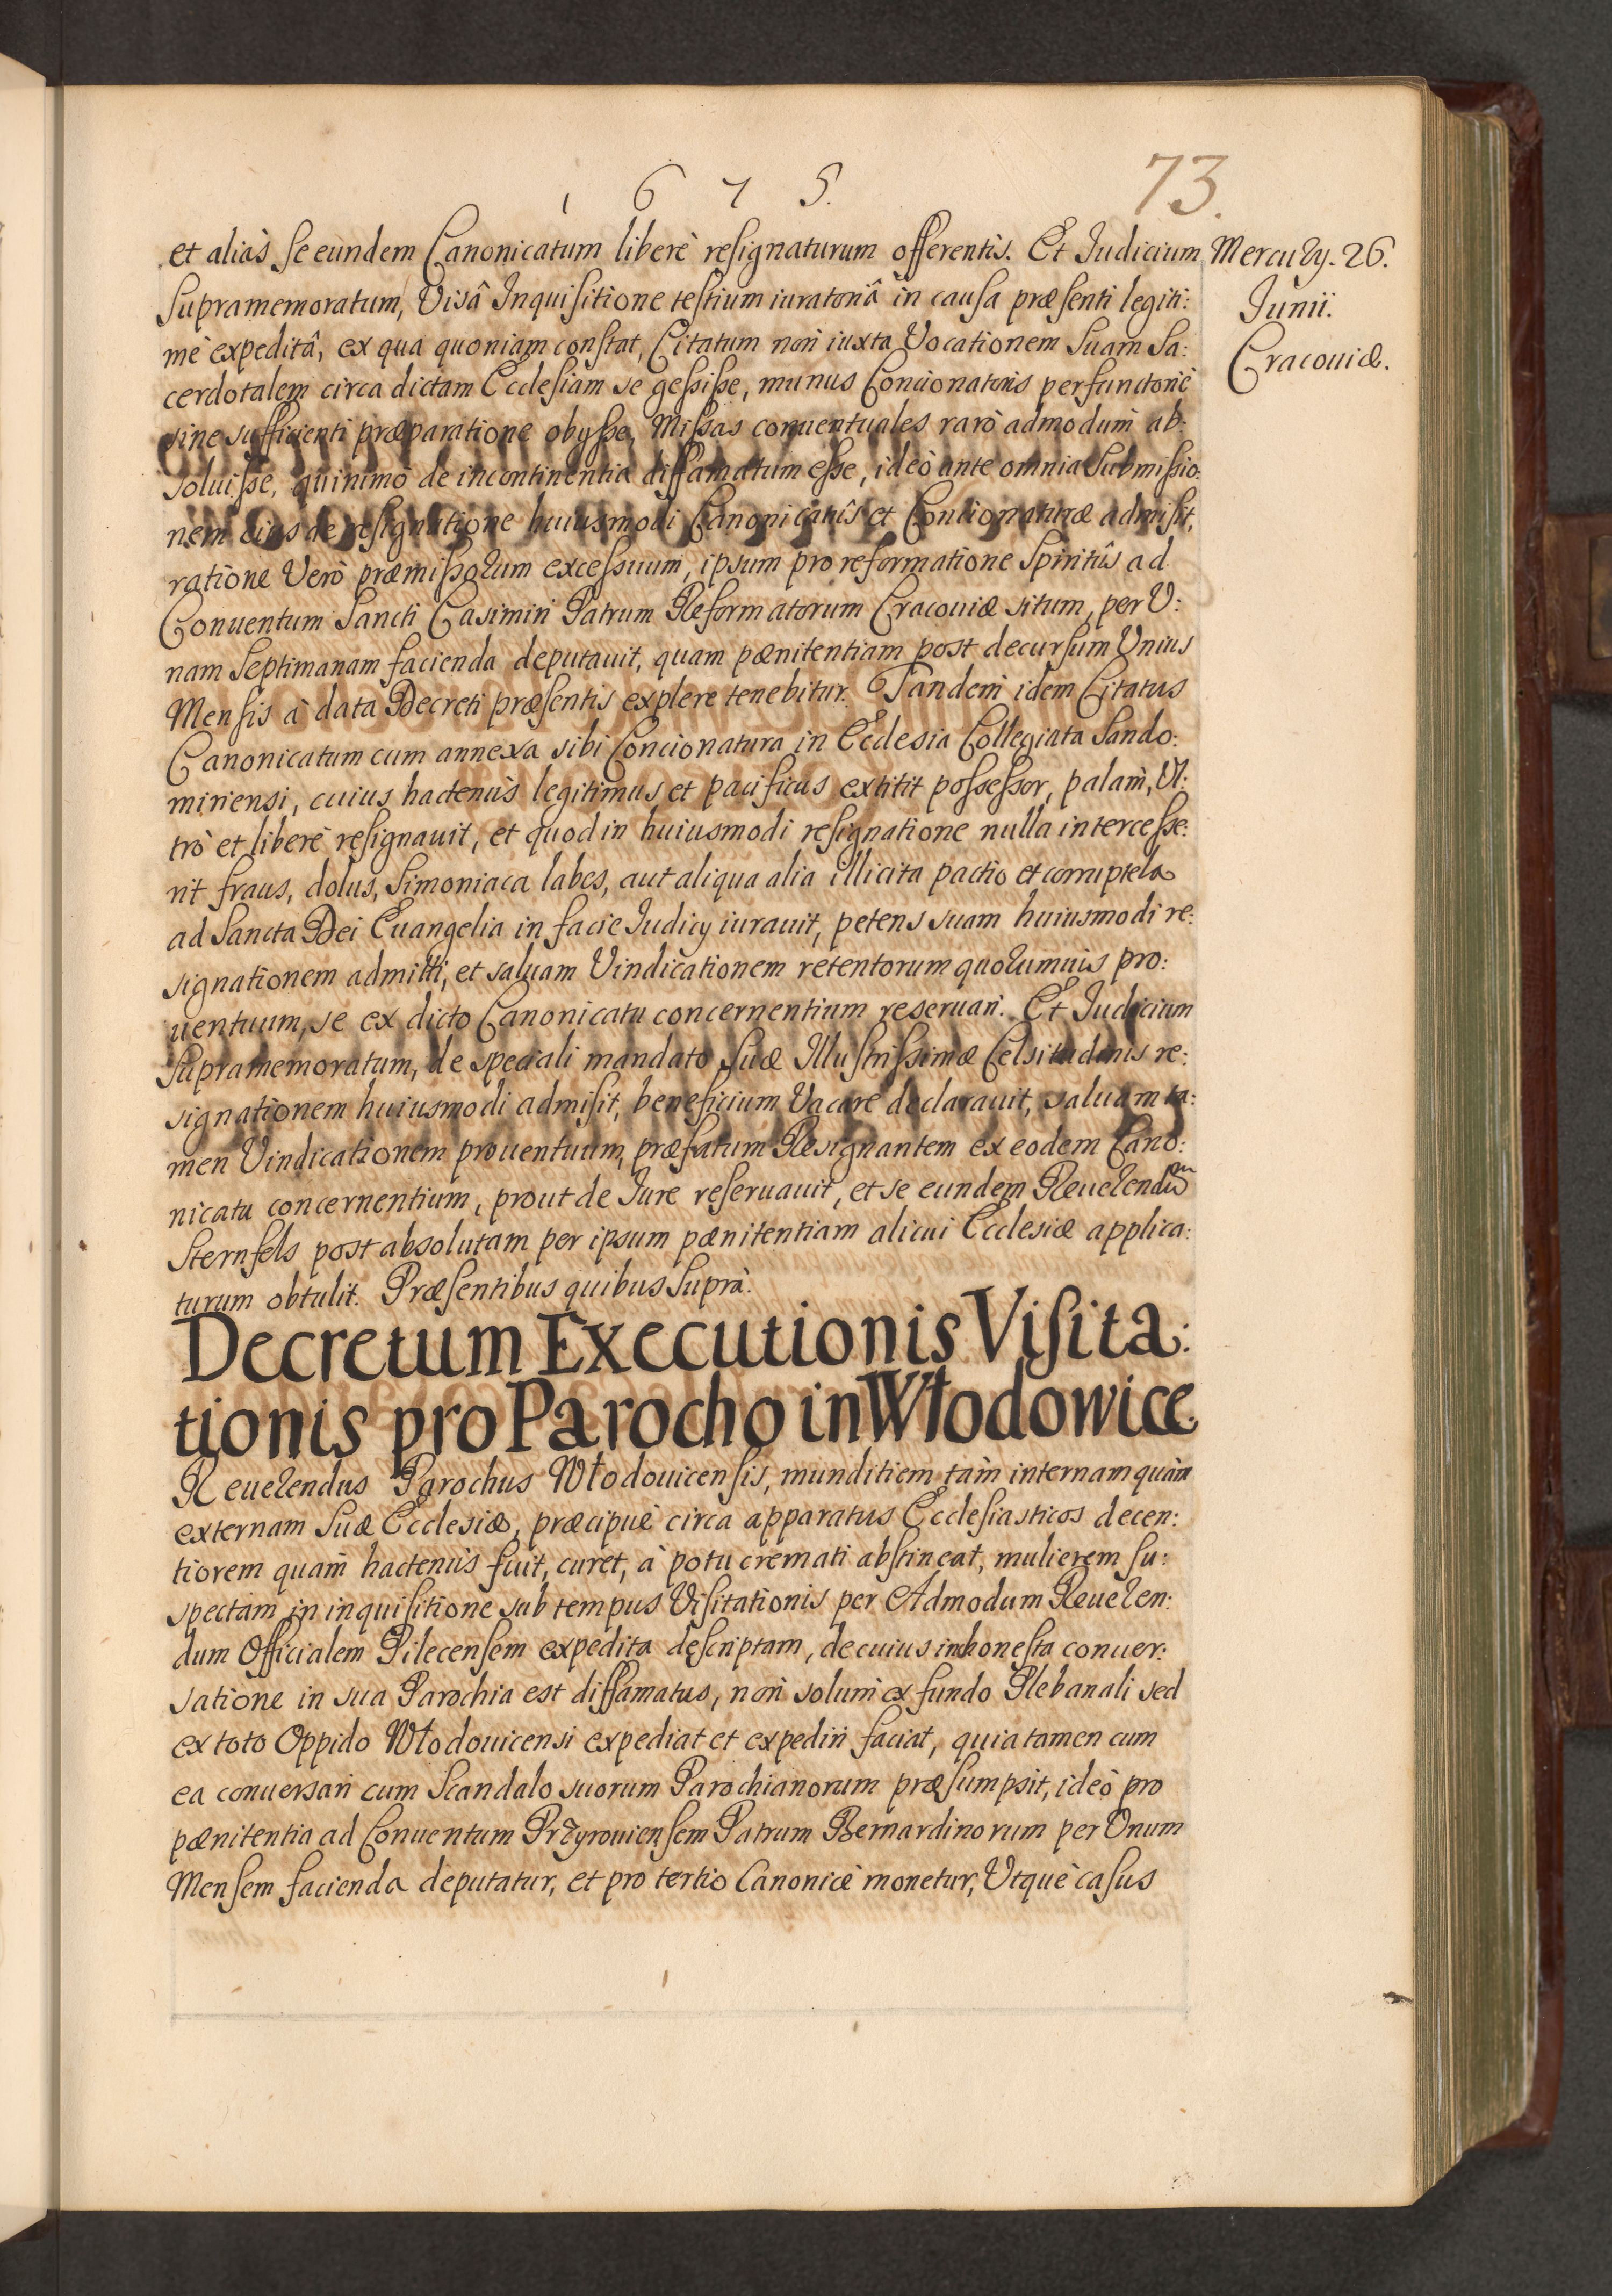 1 6 7 5.
73.
et aliàs se eundem Canonicatum liberè resignaturum offerentis. Et Iudicium
Mercurij. 26.
Iunii.
Cracouiæ.
Supramemoratum, Visâ Inquisitione testium iuratoriâ in causa præsenti legiti:
mè expeditâ, ex qua quoniam constat, Citatum non iuxta Vocationem Suam Sa:
cerdotalem circa dictam Ecclesiam se gessisse, munus Concionatoris perfunctoriè
sine sufficienti præparatione obijsse, Missas conuentuales rarò admodum ab:
soluisse, quinimò de incontinentia diffamatum esse, ideò ante omnia Submissio:
nem eius de resignatione huiusmodi Canonicatûs et Concionaturæ admisit,
ratione Verò præmissorum excessuum, ipsum pro reformatione Spiritûs ad
Conuentum Sancti Casimiri Patrum Reformatorum Cracouiæ situm, per V:
nam Septimanam facienda deputauit, quam pænitentiam post decursum Vnius
Mensis à data Decreti præsentis explere tenebitur. Tandem idem Citatus
Canonicatum cum annexa sibi Concionatura in Ecclesia Collegiata Sando:
miriensi, cuius hactenùs legitimus et pacificus extitit possessor, palàm, Vl:
trò et liberè resignauit, et quod in huiusmodi resignatione nulla intercesse:
rit fraus, dolus, Simoniaca labes, aut aliqua alia illicita pactio et corruptela
ad Sancta Dei Euangelia in facie Iudicij iurauit, petens suam huiusmodi re:
signationem admitti, et saluam Vindicationem retentorum quorumuis pro:
uentuum, se ex dicto Canonicatu concernentium reseruari. Et Iudicium
Supramemoratum, de speciali mandato Suæ Illustrissimæ Celsitudinis re:
signationem huiusmodi admisit, beneficium Vacare declarauit, saluam ta:
men Vindicationem prouentuum, præfatum Resignantem ex eodem Cano:
nicatu concernentium, prout de Iure reseruauit, et se eundem Reuerendum
Sternfels post absolutam per ipsum pænitentiam alicui Ecclesiæ applica:
turum obtulit. Præsentibus quibus Suprà.
Decretum Executionis Visita:
tionis pro Parocho in Włodowice
Reuerendus Parochus Włodouicensis, munditiem tàm internam quàm
externam Suæ Ecclesiæ, præcipuè circa apparatus Ecclesiasticos decen:
tiorem quam hactenùs fuit, curet, à potu cremati abstineat, mulierem su:
spectam in inquisitione sub tempus Visitationis per Admodum Reueren:
dum Officialem Pilecensem expedita descriptam, de cuius inhonesta conuer:
satione in sua Parochia est diffamatus, non solum ex fundo Plebanali sed
ex toto Oppido Włodouicensi expediat et expediri faciat, quia tamen cum
ea conuersari cum Scandalo suorum Parochianorum præsumpsit, ideò pro
pænitentia ad Conuentum Przyrouiensem Patrum Bernardinorum per Vnum
Mensem facienda deputatur, et pro tertio Canonicè monetur, Vtquè casus